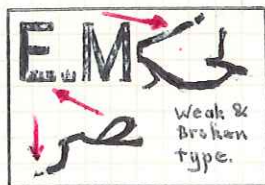 E.M
Weak &
Broken
type.